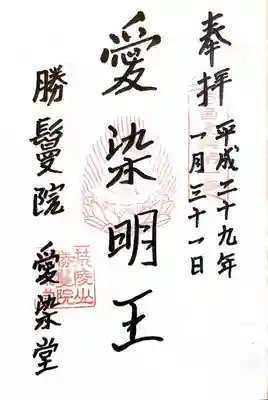 奉拝
平成二十九年
一月三十一日
愛染明王
勝鬘院 愛染堂